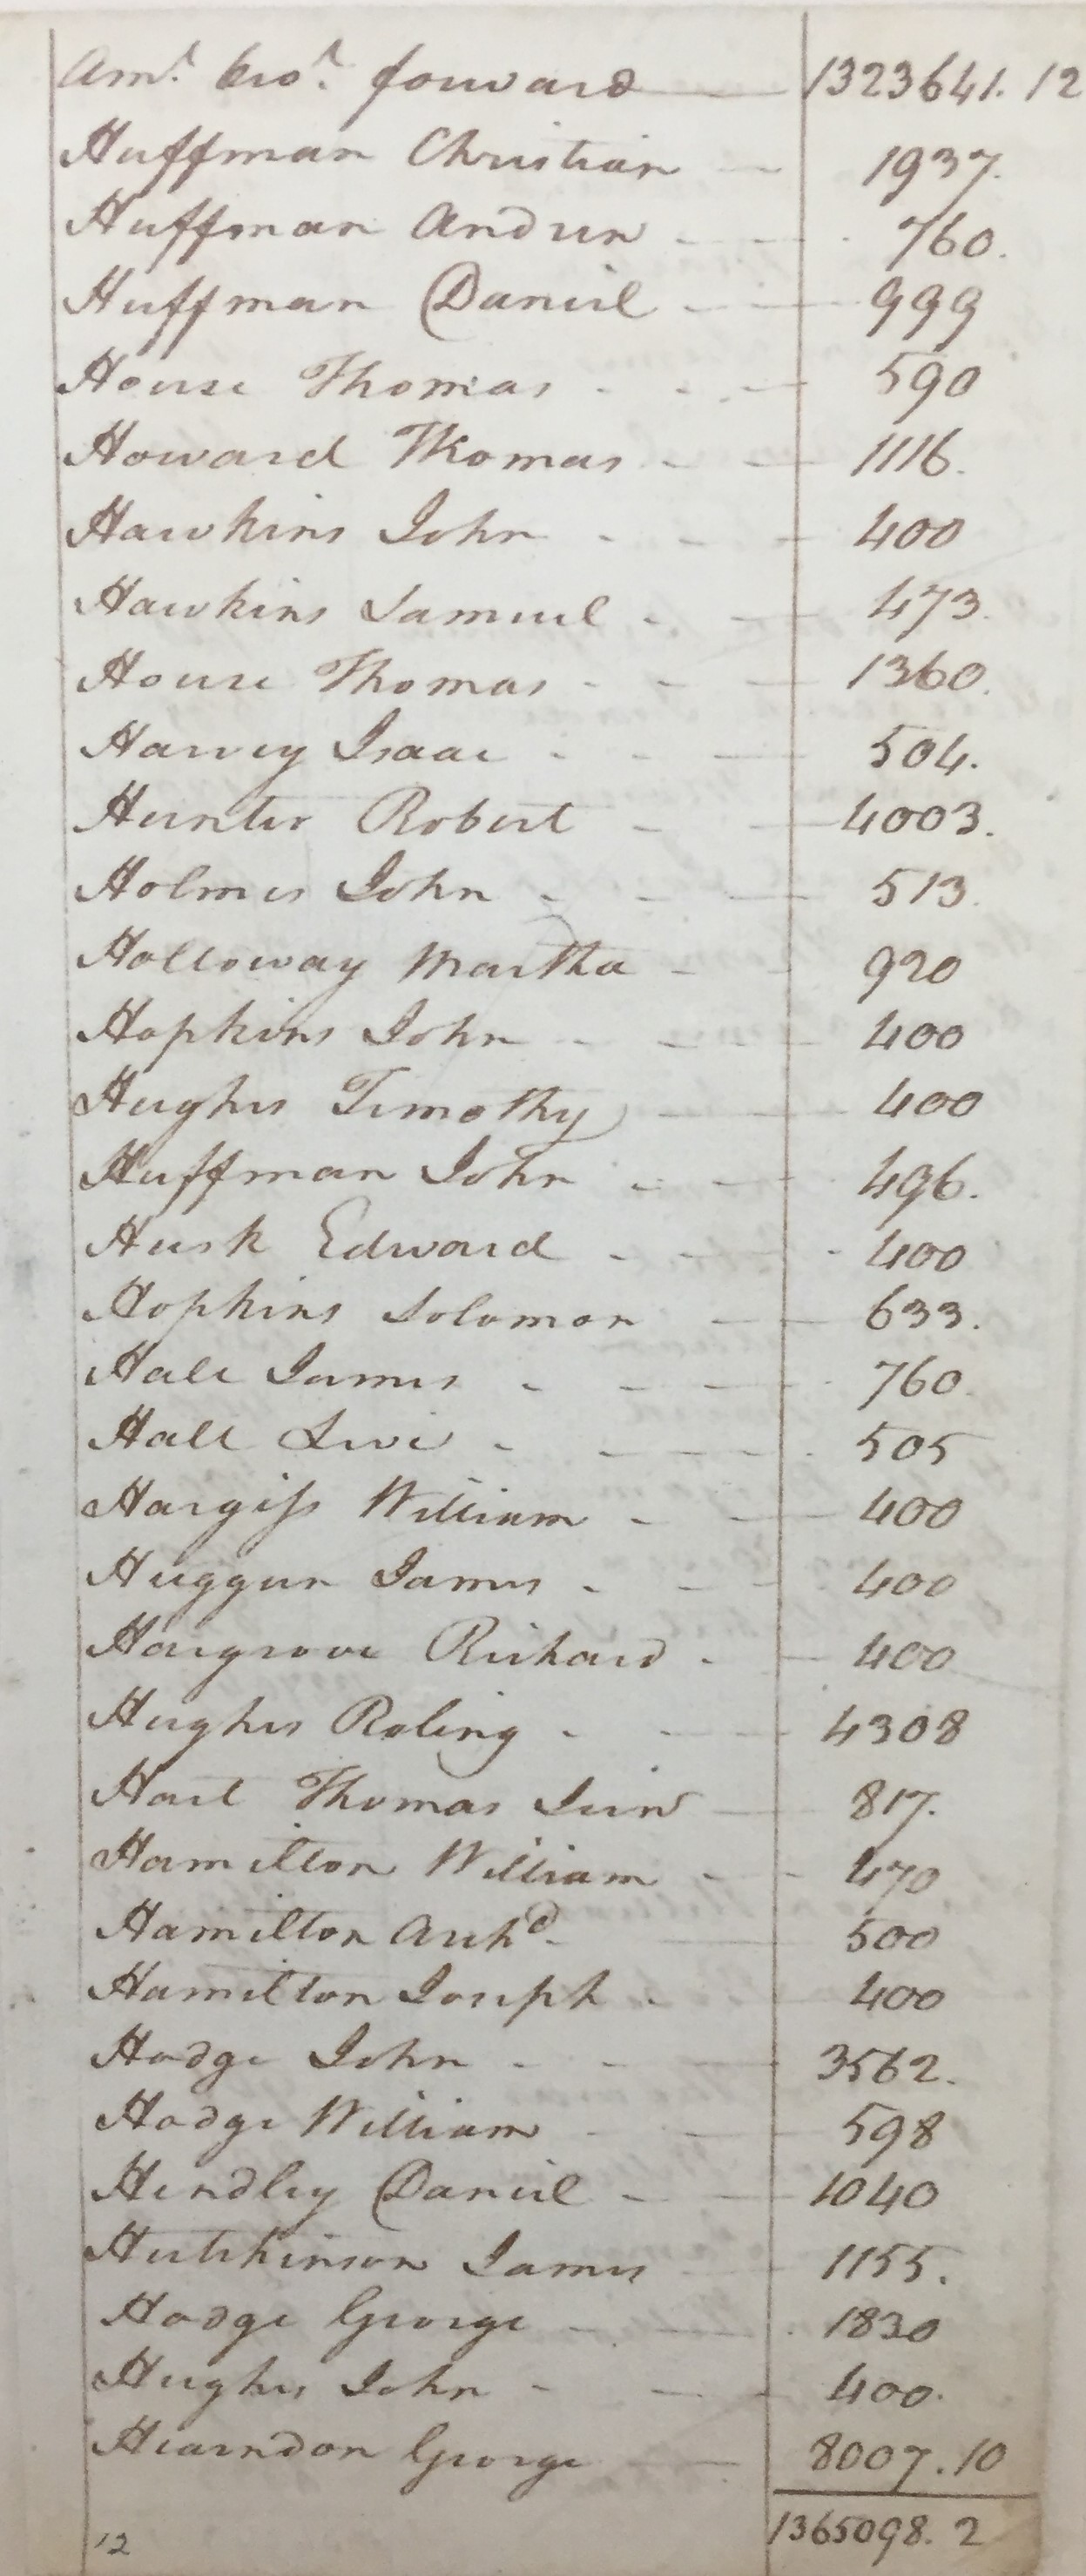 Amt. bro.t forward 1323641.12
Huffman Christian 1937.
Huffman Andrew 760.
Huffman Daniel 999
House Thomas 590
Howard Thomas 1116.
Hawkins John 400
Hawkins Samuel 473.
House Thomas 1360.
Harvey Isaac 504.
Hunter Robert 4003.
Holmes John 513.
Holloway Martha 920
Hopkins John 400
Hughes Timothy 400
Huffman John 496.
Husk Edward 400
Hopkins Solomon 633.
Hall James 760.
Hall Levi 505
Hargiss William 400
Huggun James 400
Hargrove Richard 400
Hughes Roling 4308
Hart Thomas 817.
Hamilton William 470
Hamilton Archd. 500
Hamilton Joseph 400
Hodge John 3562.
Hodge William 598
Hendley Daniel 1040
Hutchinson James 1155.
Hodge George 1830
Hughes John 400.
Hearndon George 8007.10
12 1365098.2